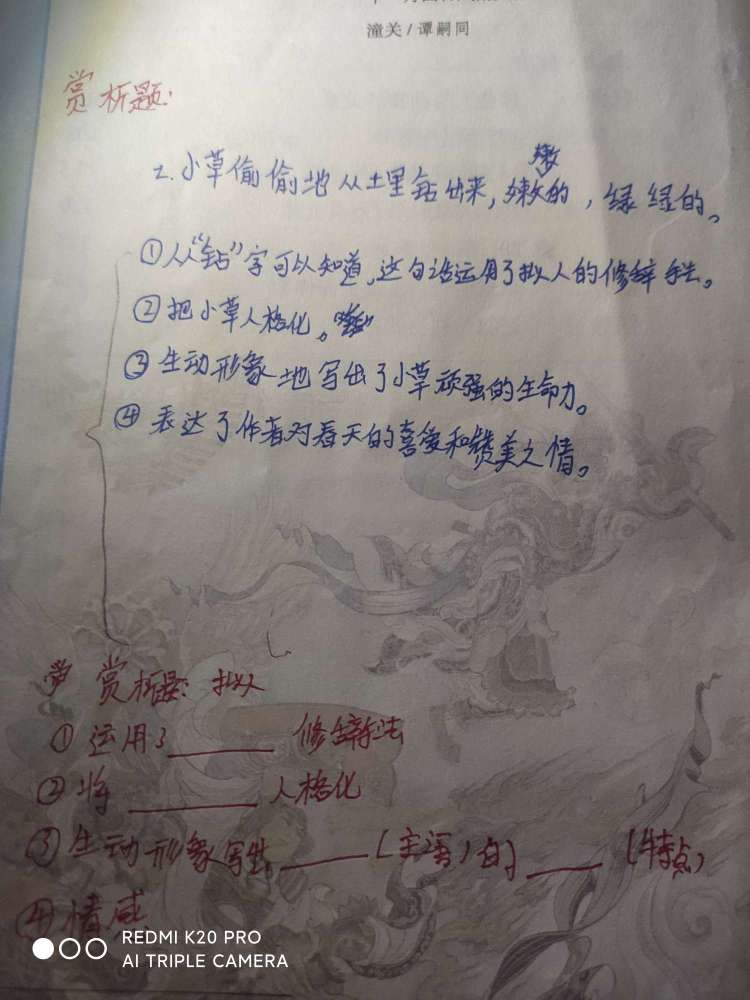 潼关/谭嗣同
赏析题:
2.小草偷偷地从土里钻出来,嫩嫩的,绿绿的。
①从“钻”字可以知道,这句话运用了拟人的修辞手法。
②把小草人格化。
③生动形象地写出了小草顽强的生命力。
④表达了作者对春天的喜爱和赞美之情。
赏析题:拟人
①运用了______修辞手法
②将______人格化
③生动形象写出____(主语)的____(特点)
④情感
REDMI K20 PRO
AI TRIPLE CAMERA